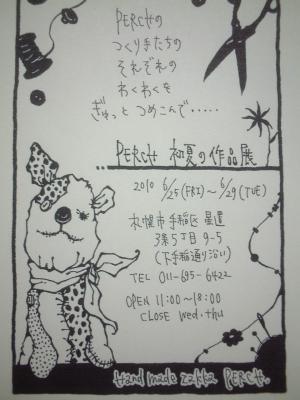 PERCHの
つくり手たちの
それぞれの
わくわくを
ぎゅっと つめこんで・・・・・
PERCH 初夏の作品展
2010 6/25(FRI)～6/29(TUE)
札幌市手稲区 星置
3条5丁目 9-5
(下手稲通り沿い)
TEL 011-695-6422
OPEN 11:00～18:00
CLOSE wed.thu
Hand made zakka PERCH.